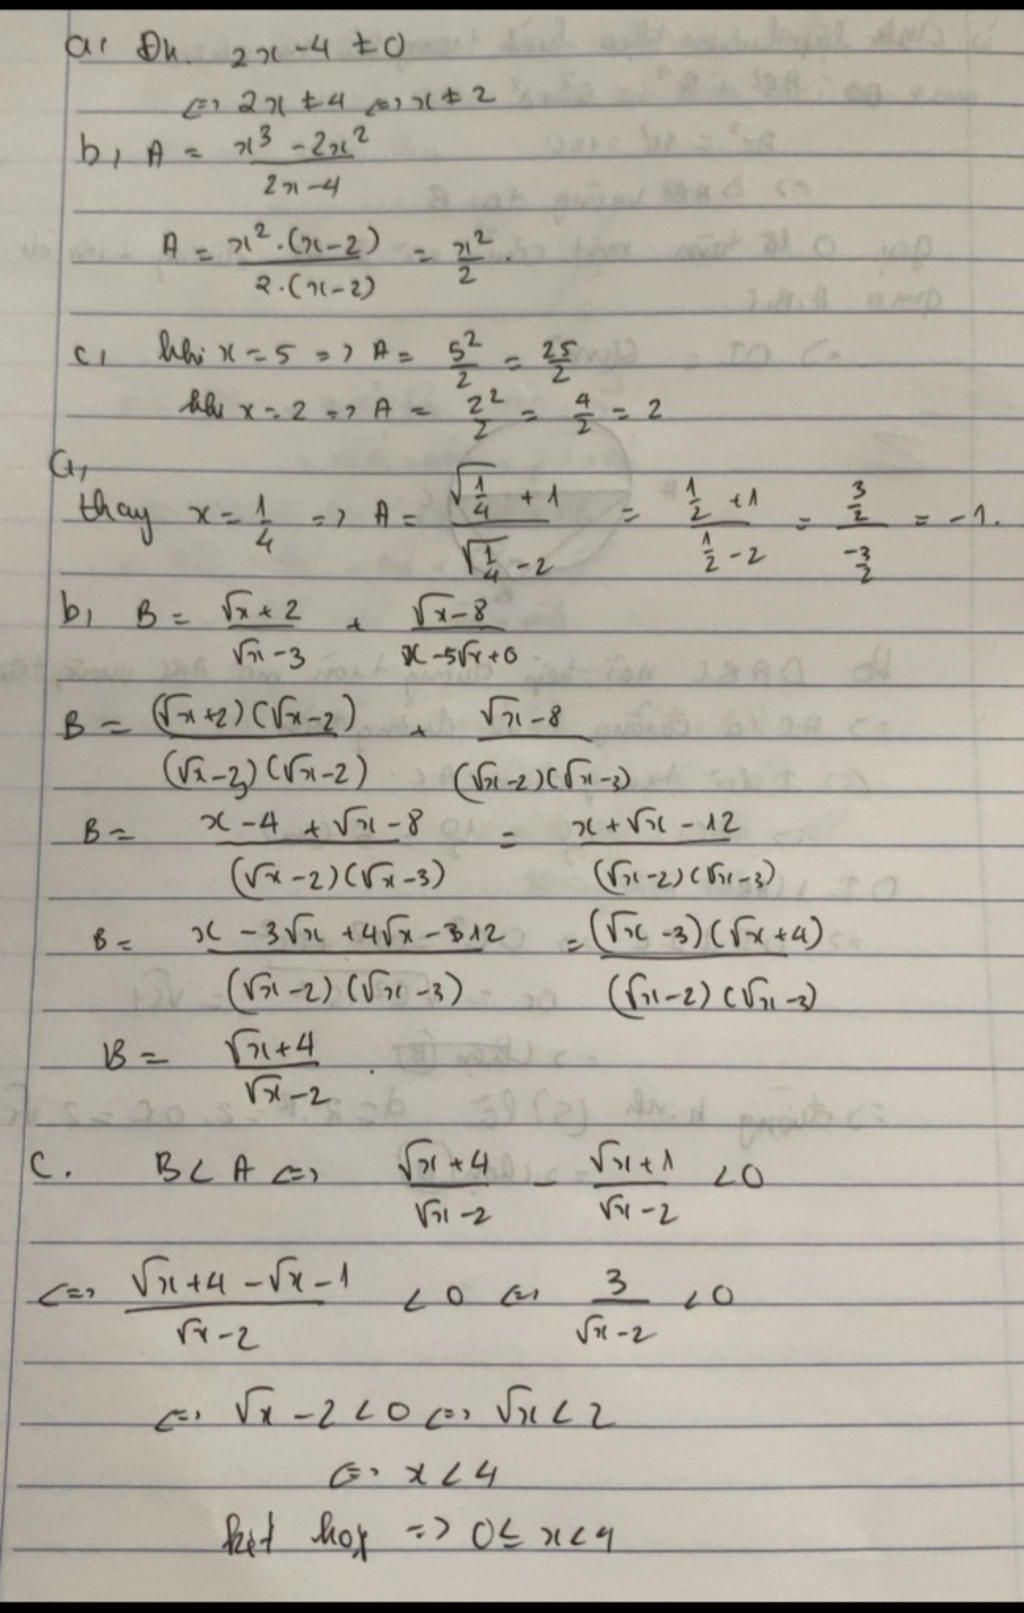 a, Đk. 2x - 4 ≠ 0
<=> 2x ≠ 4 <=> x ≠ 2
b, A = (x³ - 2x²)/(2x - 4)
A = (x².(x-2))/(2.(x-2)) = x²/2.
c, khi x = 5 => A = 5²/2 = 25/2
khi x = 2 => A = 2²/2 = 4/2 = 2
a,
thay x = 1/4 => A = (√(1/4) + 1)/(√(1/4) - 2) = (1/2 + 1)/(1/2 - 2) = (3/2)/(-3/2) = -1.
b, B = (√x + 2)/(√x - 3) + (√x - 8)/(x - 5√x + 6)
B = ((√x+2)(√x-2))/((√x-3)(√x-2)) + (√x - 8)/((√x-2)(√x-3))
B = (x - 4 + √x - 8)/((√x-2)(√x-3)) = (x + √x - 12)/((√x-2)(√x-3))
B = (x - 3√x + 4√x - 12)/((√x-2)(√x-3)) = ((√x-3)(√x+4))/((√x-2)(√x-3))
B = (√x+4)/(√x-2).
C. B < A <=> (√x+4)/(√x-2) - (√x+1)/(√x-2) < 0
<=> (√x+4-√x-1)/(√x-2) < 0 <=> 3/(√x-2) < 0
<=> √x - 2 < 0 <=> √x < 2
<=> x < 4
kết hợp => 0 ≤ x < 4